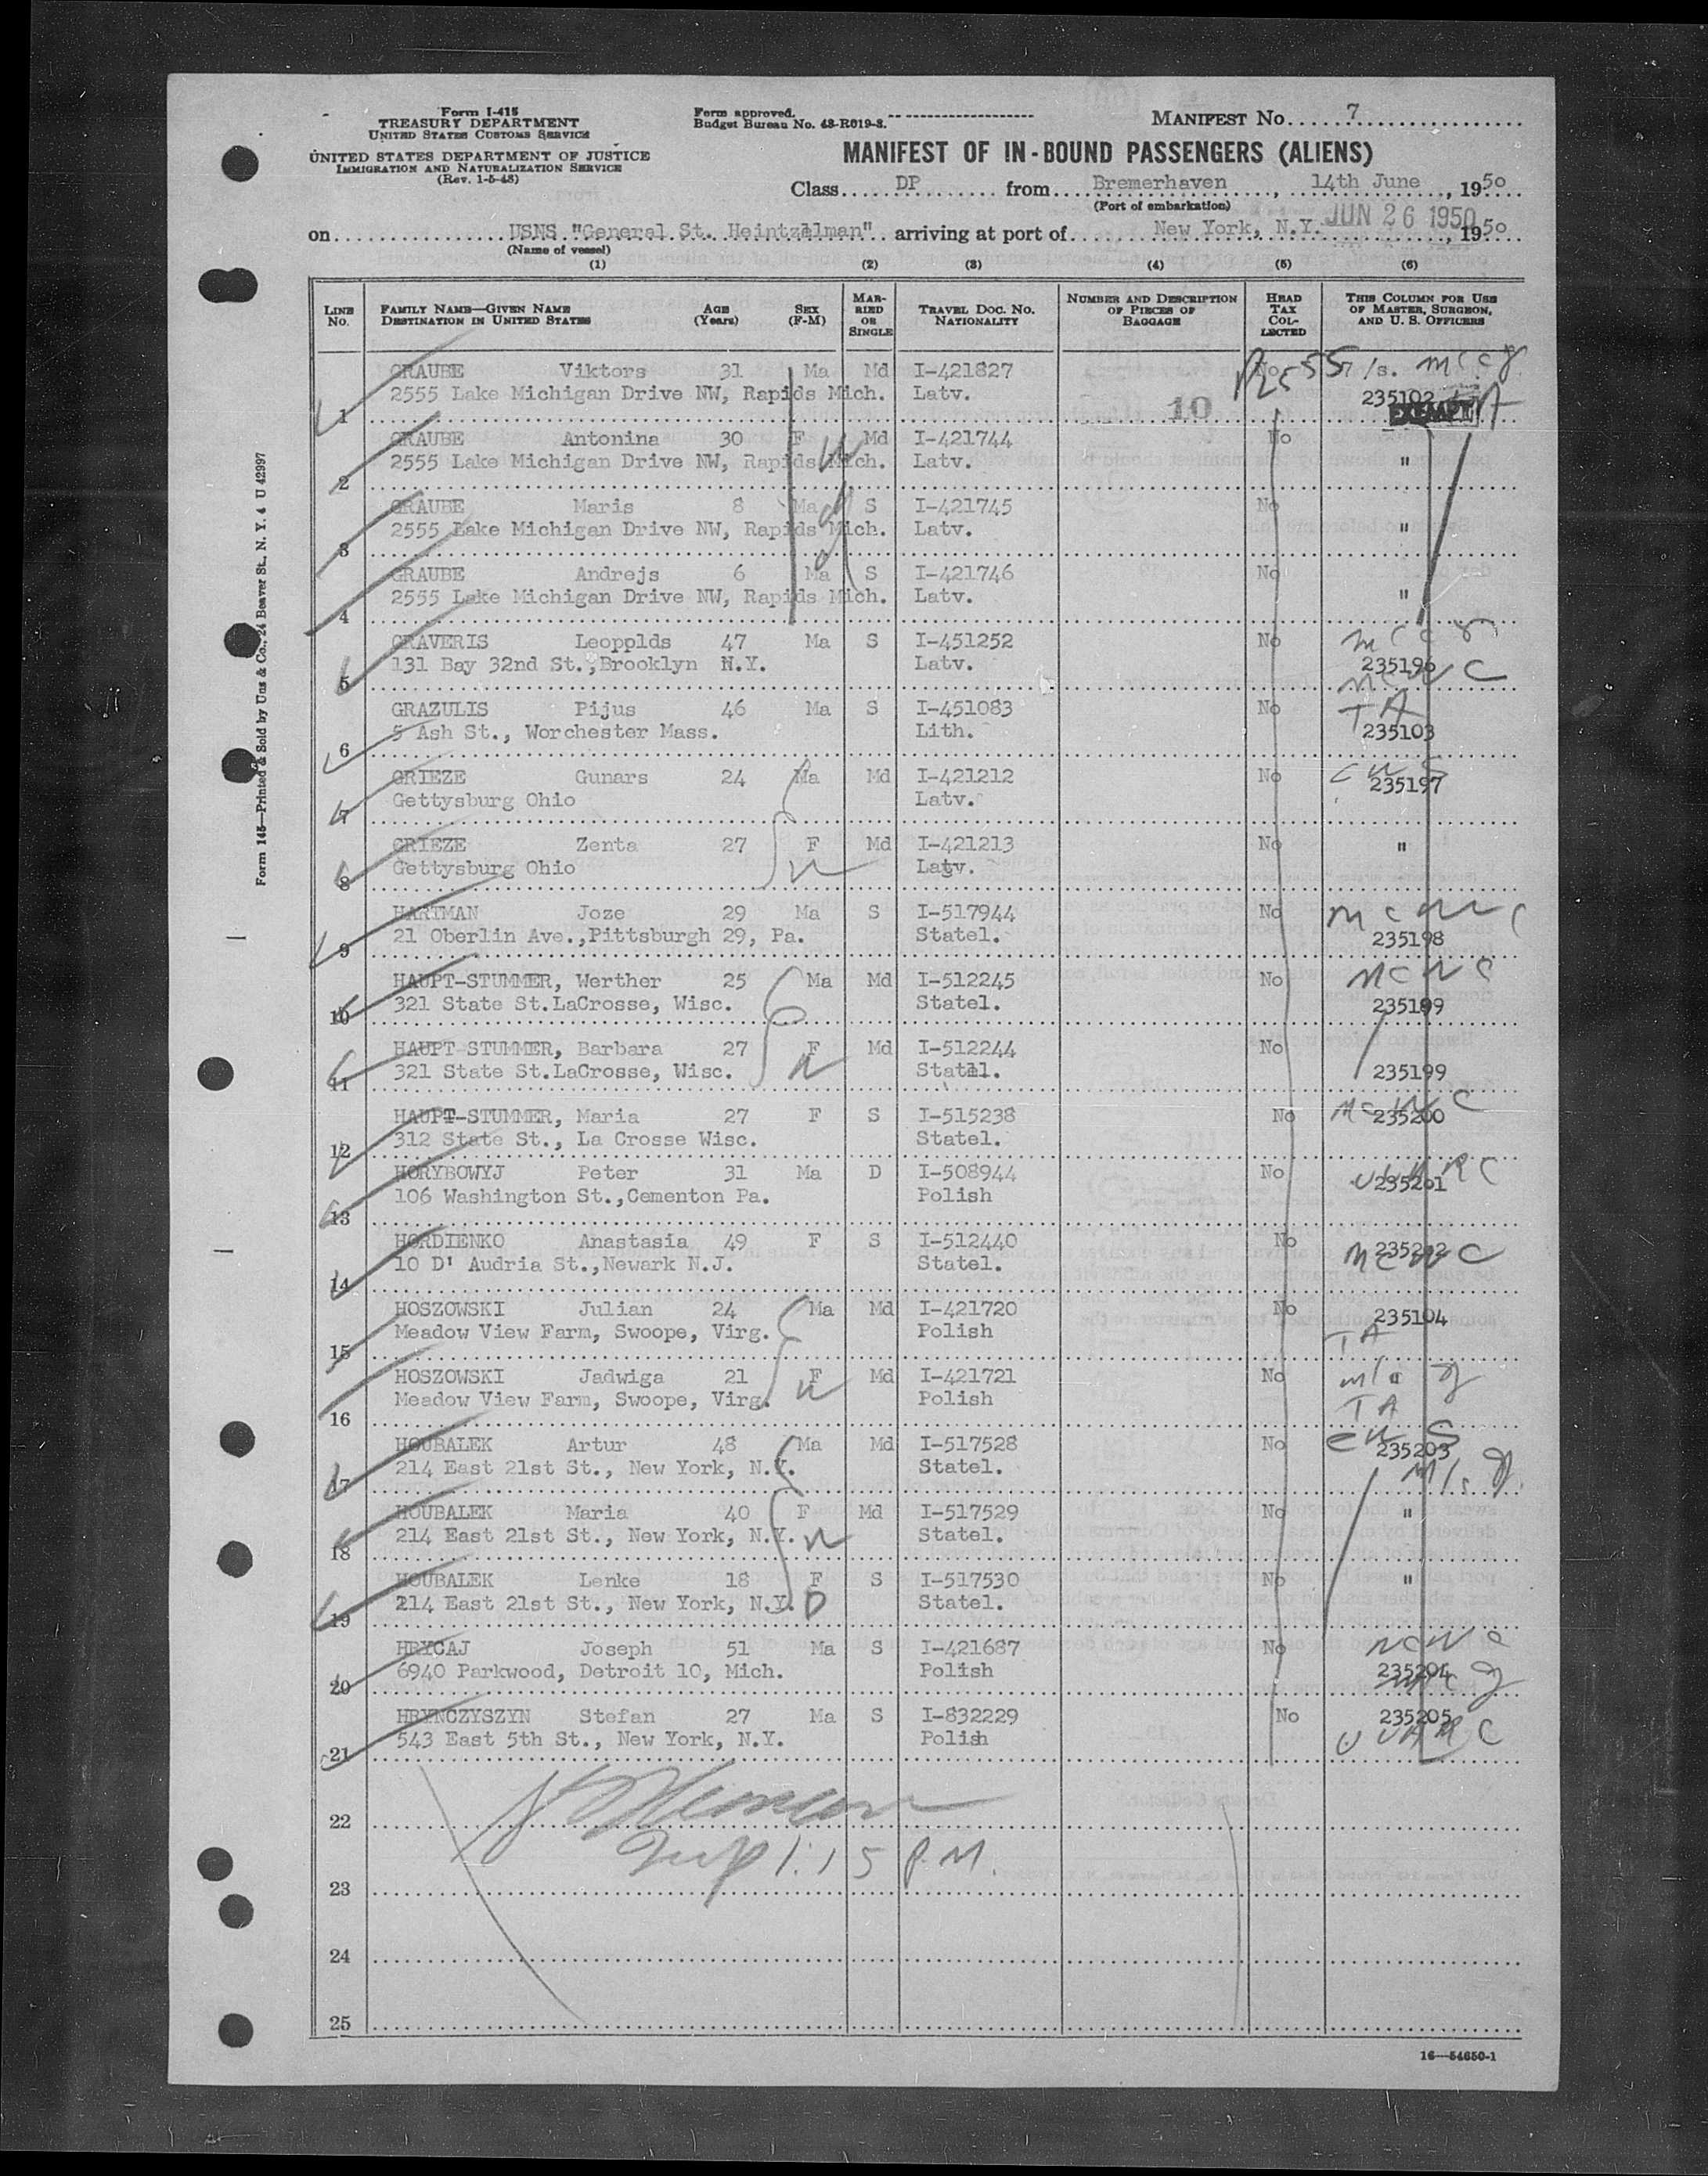 Form I-415
TREASURY DEPARTMENT
UNITED STATES CUSTOMS SERVICE
UNITED STATES DEPARTMENT OF JUSTICE
IMMIGRATION AND NATURALIZATION SERVICE
(Rev. 1-5-48)
Form approved.
Budget Bureau No. 43-R019-3.
MANIFEST No. 7
MANIFEST OF IN-BOUND PASSENGERS (ALIENS)
Class DP from Bremerhaven, 14th June, 1950
(Port of embarkation)
JUN 26 1950
on USNS "General St. Heintzelman" arriving at port of New York, N.Y., 1950
(Name of vessel)
(1) (2) (3) (4) (5) (6)
LINE No. FAMILY NAME—GIVEN NAME DESTINATION IN UNITED STATES AGE (Years) SEX (F-M) MARRIED OR SINGLE TRAVEL DOC. NO. NATIONALITY NUMBER AND DESCRIPTION OF PIECES OF BAGGAGE HEAD TAX COLLECTED THIS COLUMN FOR USE OF MASTER, SURGEON, AND U. S. OFFICERS
GRAUBE Viktors 31 Ma Md I-421827 No
1 2555 Lake Michigan Drive NW, Rapids Mich. Latv. 10 235102 EXEMPT
GRAUBE Antonina 30 F Md I-421744 No
2 2555 Lake Michigan Drive NW, Rapids Mich. Latv. "
GRAUBE Maris 8 Ma S I-421745 No
3 2555 Lake Michigan Drive NW, Rapids Mich. Latv. "
GRAUBE Andrejs 6 Ma S I-421746 No
4 2555 Lake Michigan Drive NW, Rapids Mich. Latv. "
GRAVERIS Leopolds 47 Ma S I-451252 No
5 131 Bay 32nd St.,Brooklyn N.Y. Latv. 235196
GRAZULIS Pijus 46 Ma S I-451083 No TA
6 5 Ash St., Worchester Mass. Lith. 235103
GRIEZE Gunars 24 Ma Md I-421212 No 235197
7 Gettysburg Ohio Latv.
GRIEZE Zenta 27 F Md I-421213 No "
8 Gettysburg Ohio Latv.
HARTMAN Joze 29 Ma S I-517944 No
9 21 Oberlin Ave.,Pittsburgh 29, Pa. Statel. 235198
HAUPT-STUMMER, Werther 25 Ma Md I-512245 No
10 321 State St.LaCrosse, Wisc. Statel. 235199
HAUPT STUMMER, Barbara 27 F Md I-512244 No
11 321 State St.LaCrosse, Wisc. Statel. 235199
HAUPT-STUMMER, Maria 27 F S I-515238 No 235200
12 312 State St., La Crosse Wisc. Statel.
HORYBOWYJ Peter 31 Ma D I-508944 No 235201
13 106 Washington St.,Cementon Pa. Polish
HORDIENKO Anastasia 49 F S I-512440 No 235202
14 10 D' Audria St.,Newark N.J. Statel.
HOSZOWSKI Julian 24 Ma Md I-421720 No 235104
15 Meadow View Farm, Swoope, Virg. Polish TA
HOSZOWSKI Jadwiga 21 F Md I-421721 No
16 Meadow View Farm, Swoope, Virg. Polish TA
HOUBALEK Artur 48 Ma Md I-517528 No 235203
17 214 East 21st St., New York, N.Y. Statel.
HOUBALEK Maria 40 F Md I-517529 No "
18 214 East 21st St., New York, N.Y. Statel.
HOUBALEK Lenke 18 F S I-517530 No "
19 214 East 21st St., New York, N.Y. D Statel.
HRYCAJ Joseph 51 Ma S I-421687 No
20 6940 Parkwood, Detroit 10, Mich. Polish 235204
HRYNCZYSZYN Stefan 27 Ma S I-832229 No 235205
21 543 East 5th St., New York, N.Y. Polish
22
1:15 P.M.
23
24
25
16—54650-1
Form 145—Printed & Sold by Unz & Co., 24 Beaver St., N. Y. 4 U 42997